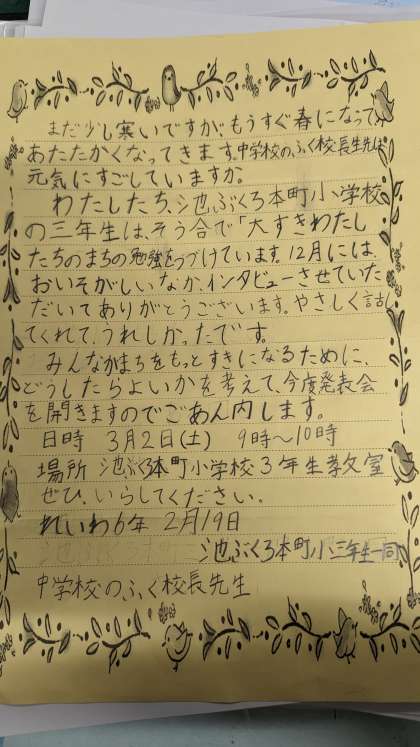 まだ少し寒いですが、もうすぐ春になって、
あたたかくなってきます。中学校のふく校長先生は
元気にすごしていますか。
わたしたち、池ぶくろ本町小学校
の三年生は、そう合で「大すきわたし
たちのまちの勉強をつづけています。12月には、
おいそがしいなか、インタビューさせていた
だいてありがとうございます。やさしく話し
てくれて、うれしかったです。
みんながまちをもっとすきになるために、
どうしたらよいかを考えて、今度発表会
を開きますのでごあん内します。
日時 3月2日(土) 9時～10時
場所 池ぶくろ本町小学校3年生教室
ぜひ、いらしてください。
れいわ6年 2月19日
池ぶくろ本町小三年生一同
中学校のふく校長先生